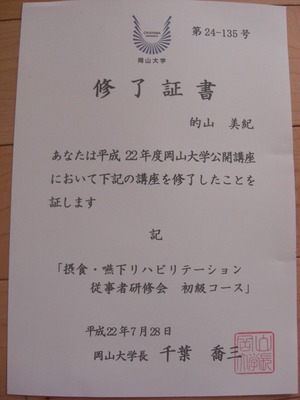 第24-135号
OKAYAMA
UNIVERSITY
岡山大学
修了証書
的山 美紀
あなたは平成22年度岡山大学公開講座
において下記の講座を修了したことを
証します
記
「摂食・嚥下リハビリテーション
従事者研修会 初級コース」
平成22年7月28日
岡山大学長 千葉 喬三